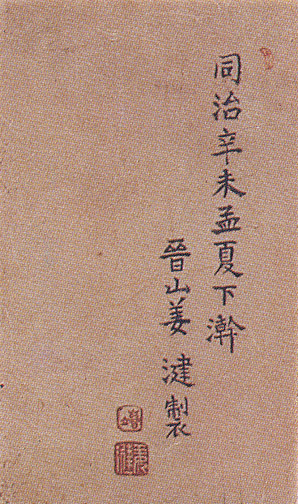 同治辛未孟夏下澣
晉山姜㴾製